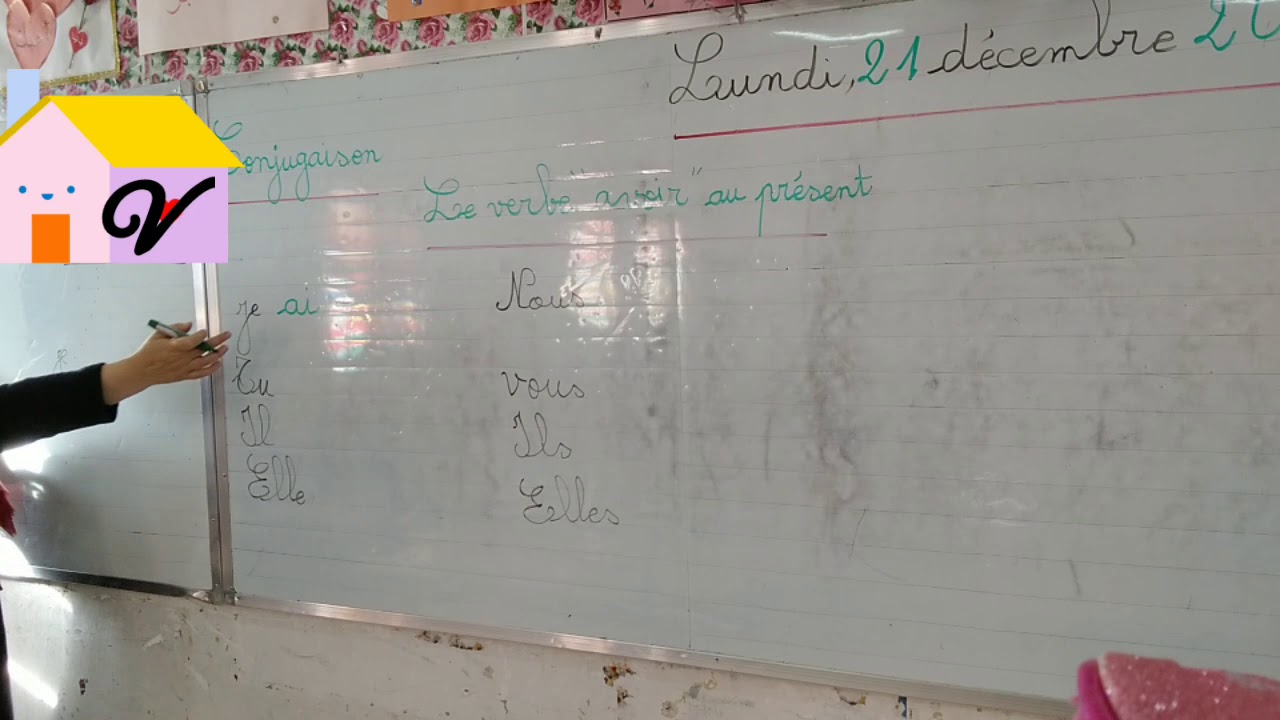 Lundi, 21 décembre 20
Conjugaison
Le verbe "avoir" au présent
je ai
Nous
Tu
vous
Il
Ils
Elle
Elles